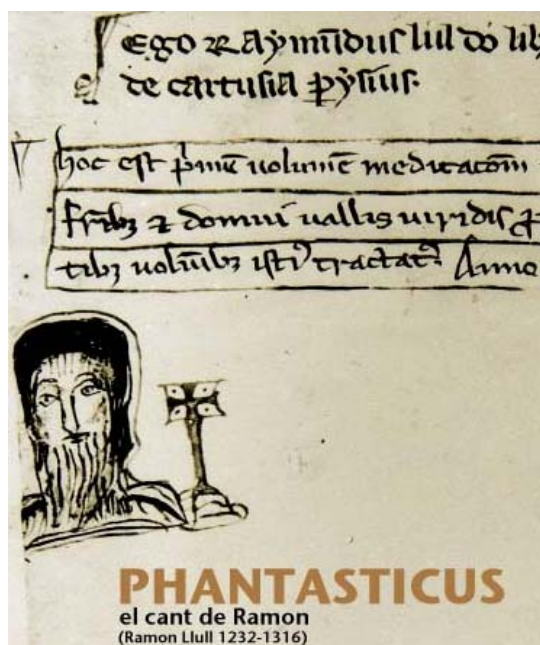 Ego Raymūdus lul do lib
de cartusia pysius.
hoc est primē uolumē meditacōm
frībz z domui uallis uiridis
tibz uolūībz isti tractat Anno
PHANTASTICUS
el cant de Ramon
(Ramon Llull 1232-1316)